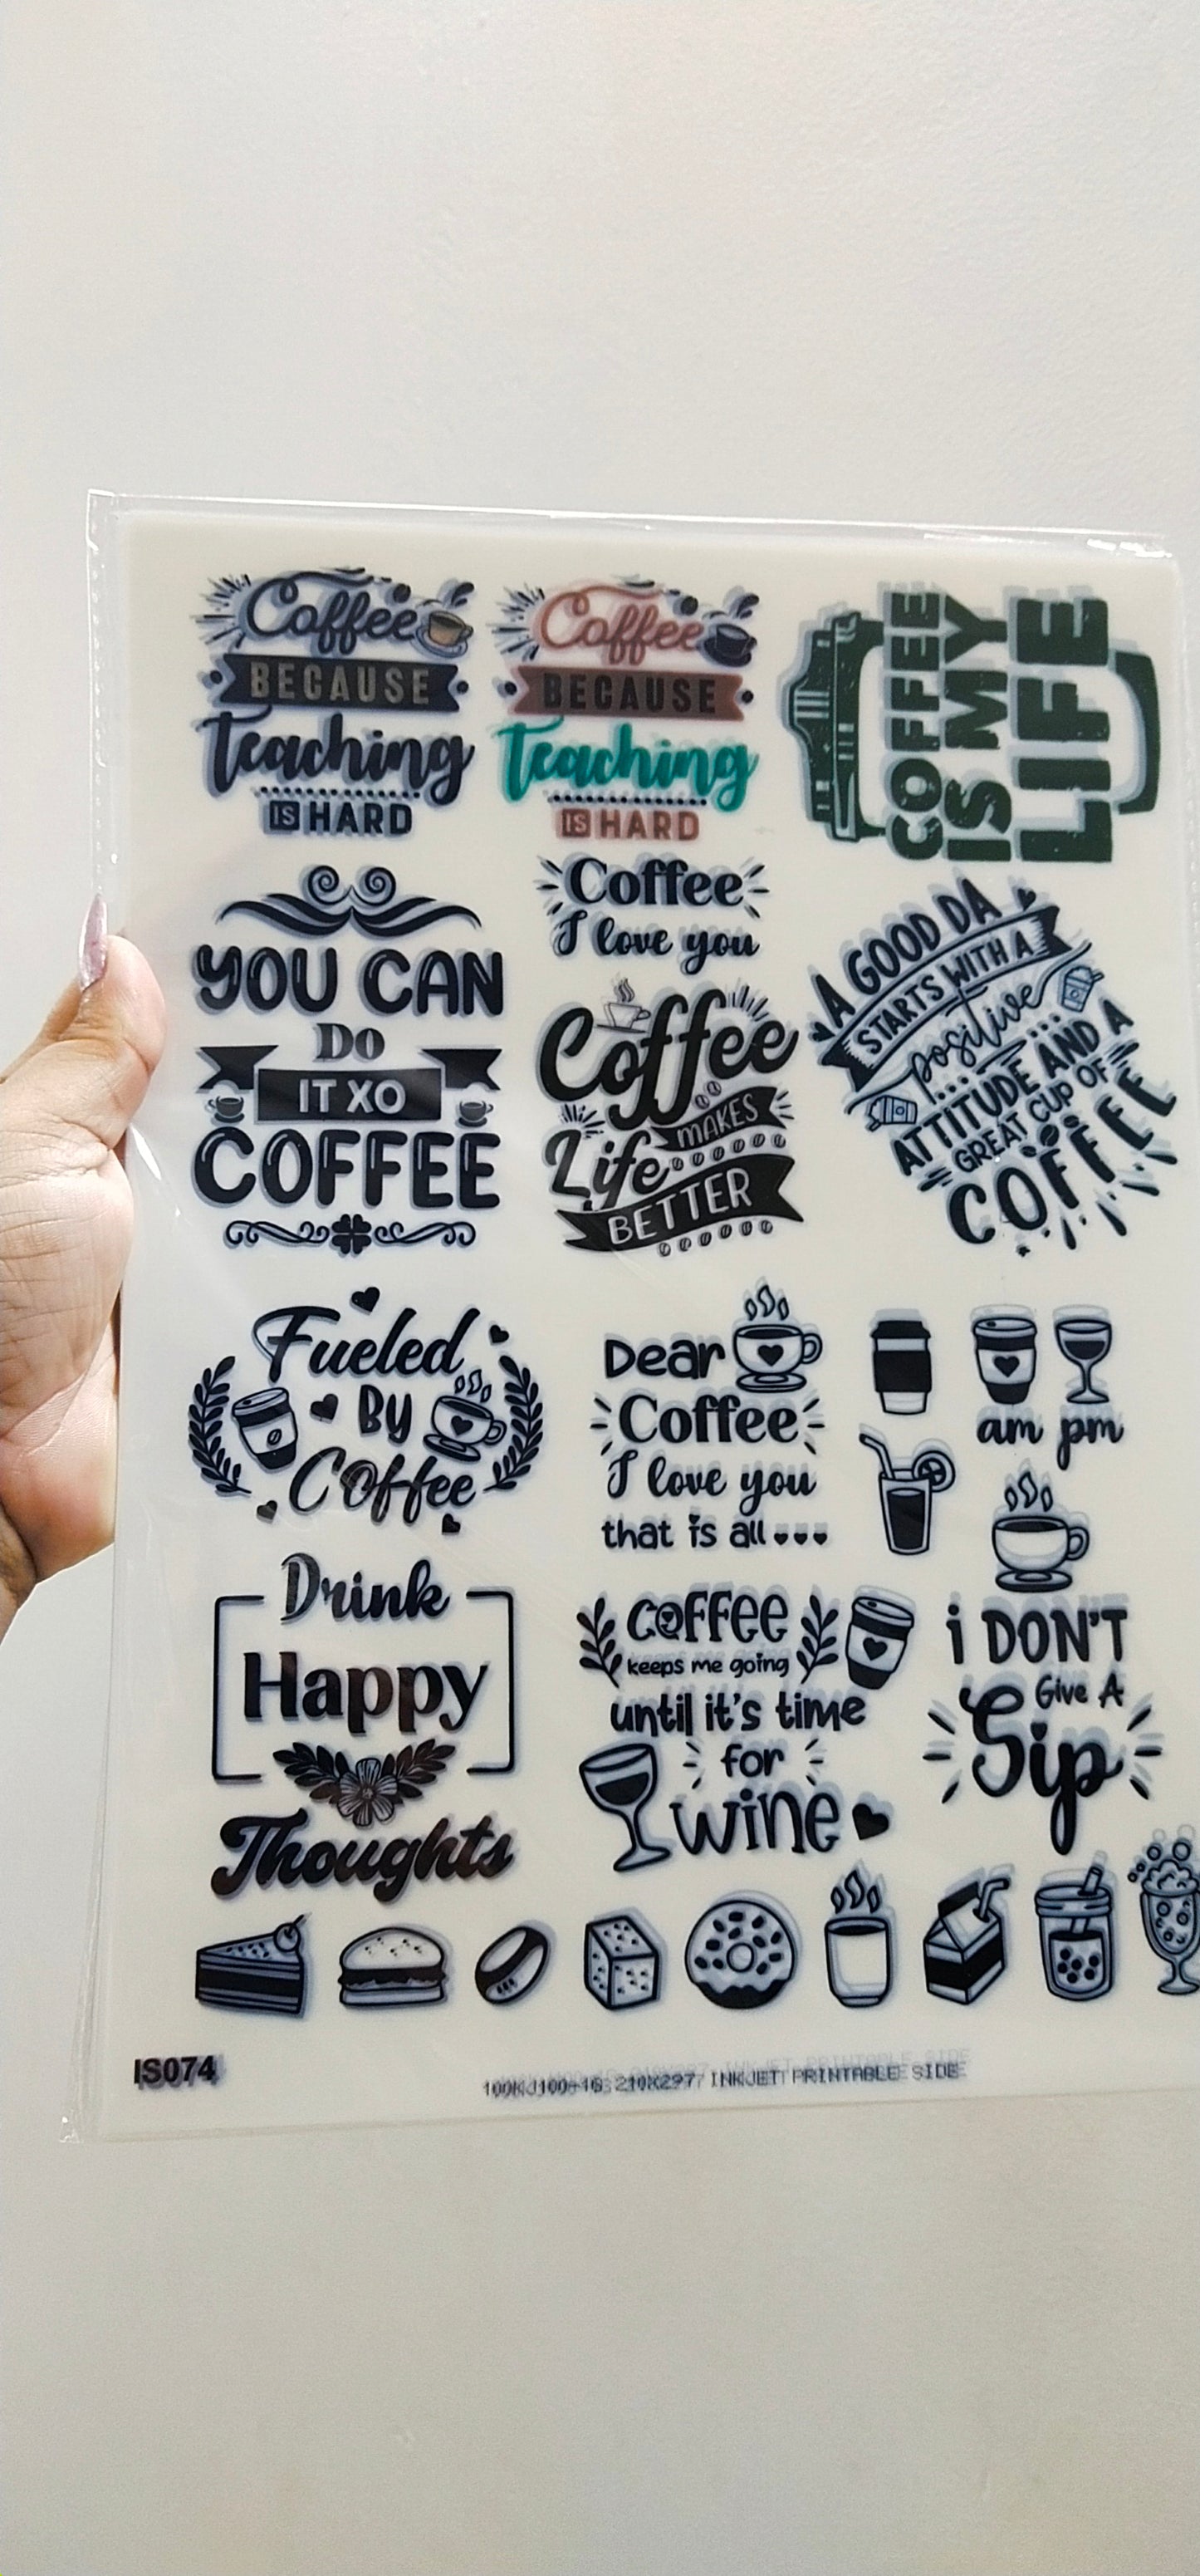 Coffee
BECAUSE
Teaching
IS HARD
Coffee
BECAUSE
Teaching
IS HARD
COFFEE
IS MY
LIFE
YOU CAN
Do
IT XO
COFFEE
Coffee
I love you
Coffee
MAKES
Life
BETTER
A GOOD DA
STARTS WITH A
positive
ATTITUDE AND A
GREAT CUP OF
COFFEE
Fueled
By
Coffee
Dear
Coffee
I love you
that is all
am pm
Drink
Happy
Thoughts
COFFEE
keeps me going
until it's time
for
wine
i DON'T
Give A
Sip
IS074
210X297 INKJET PRINTABLE SIDE